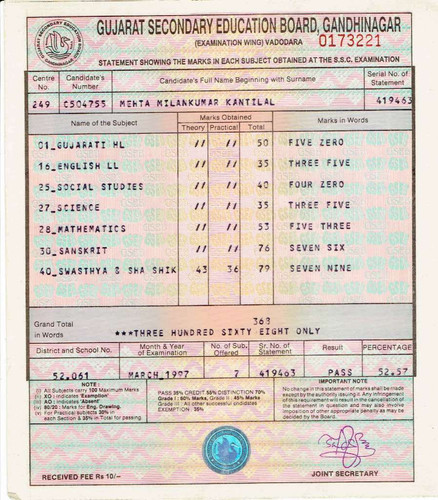 GUJARAT SECONDARY EDUCATION BOARD, GANDHINAGAR
(EXAMINATION WING) VADODARA 0173221
STATEMENT SHOWING THE MARKS IN EACH SUBJECT OBTAINED AT THE S.S.C. EXAMINATION
Centre No. Candidate's Number Candidate's Full Name Beginning with Surname Serial No. of Statement
249 C504755 MEHTA MILANKUMAR KANTILAL 419463
Name of the Subject Marks Obtained Marks in Words
Theory Practical Total
01_GUJARATI HL // // 50 FIVE ZERO
16_ENGLISH LL // // 35 THREE FIVE
25_SOCIAL STUDIES // // 40 FOUR ZERO
27_SCIENCE // // 35 THREE FIVE
28_MATHEMATICS // // 53 FIVE THREE
30_SANSKRIT // // 76 SEVEN SIX
40_SWASTHYA & SHA SHIK 43 36 79 SEVEN NINE
Grand Total 368
in Words ***THREE HUNDRED SIXTY EIGHT ONLY
District and School No. Month & Year of Examination No. of Sub. Offered Sr. No. of Statement Result PERCENTAGE
52,061 MARCH_1997 7 419463 PASS 52.57
NOTE :
(i) All Subjects carry 100 Maximum Marks
(ii) XO : indicates 'Exemption'
(iii) AO : indicates 'Absent'
(iv) 80/20 : Marks for Eng. Drawing.
(v) For Practical subjects 20% in each Section & 35% in Total for passing
PASS 35% CREDIT 55% DISTINCTION 70%
Grade I : 60% Marks Grade II : 45% Marks
Grade III : All other successful candidates
EXEMPTION : 35%
IMPORTANT NOTE
No change in this statement of marks shall be made except by the authority issuing it. Any infringement of this requirement will result in the cancellation of the statement in question and may also involve imposition of other appropriate penalty as may be decided by the Board.
RECEIVED FEE Rs 10/-
JOINT SECRETARY